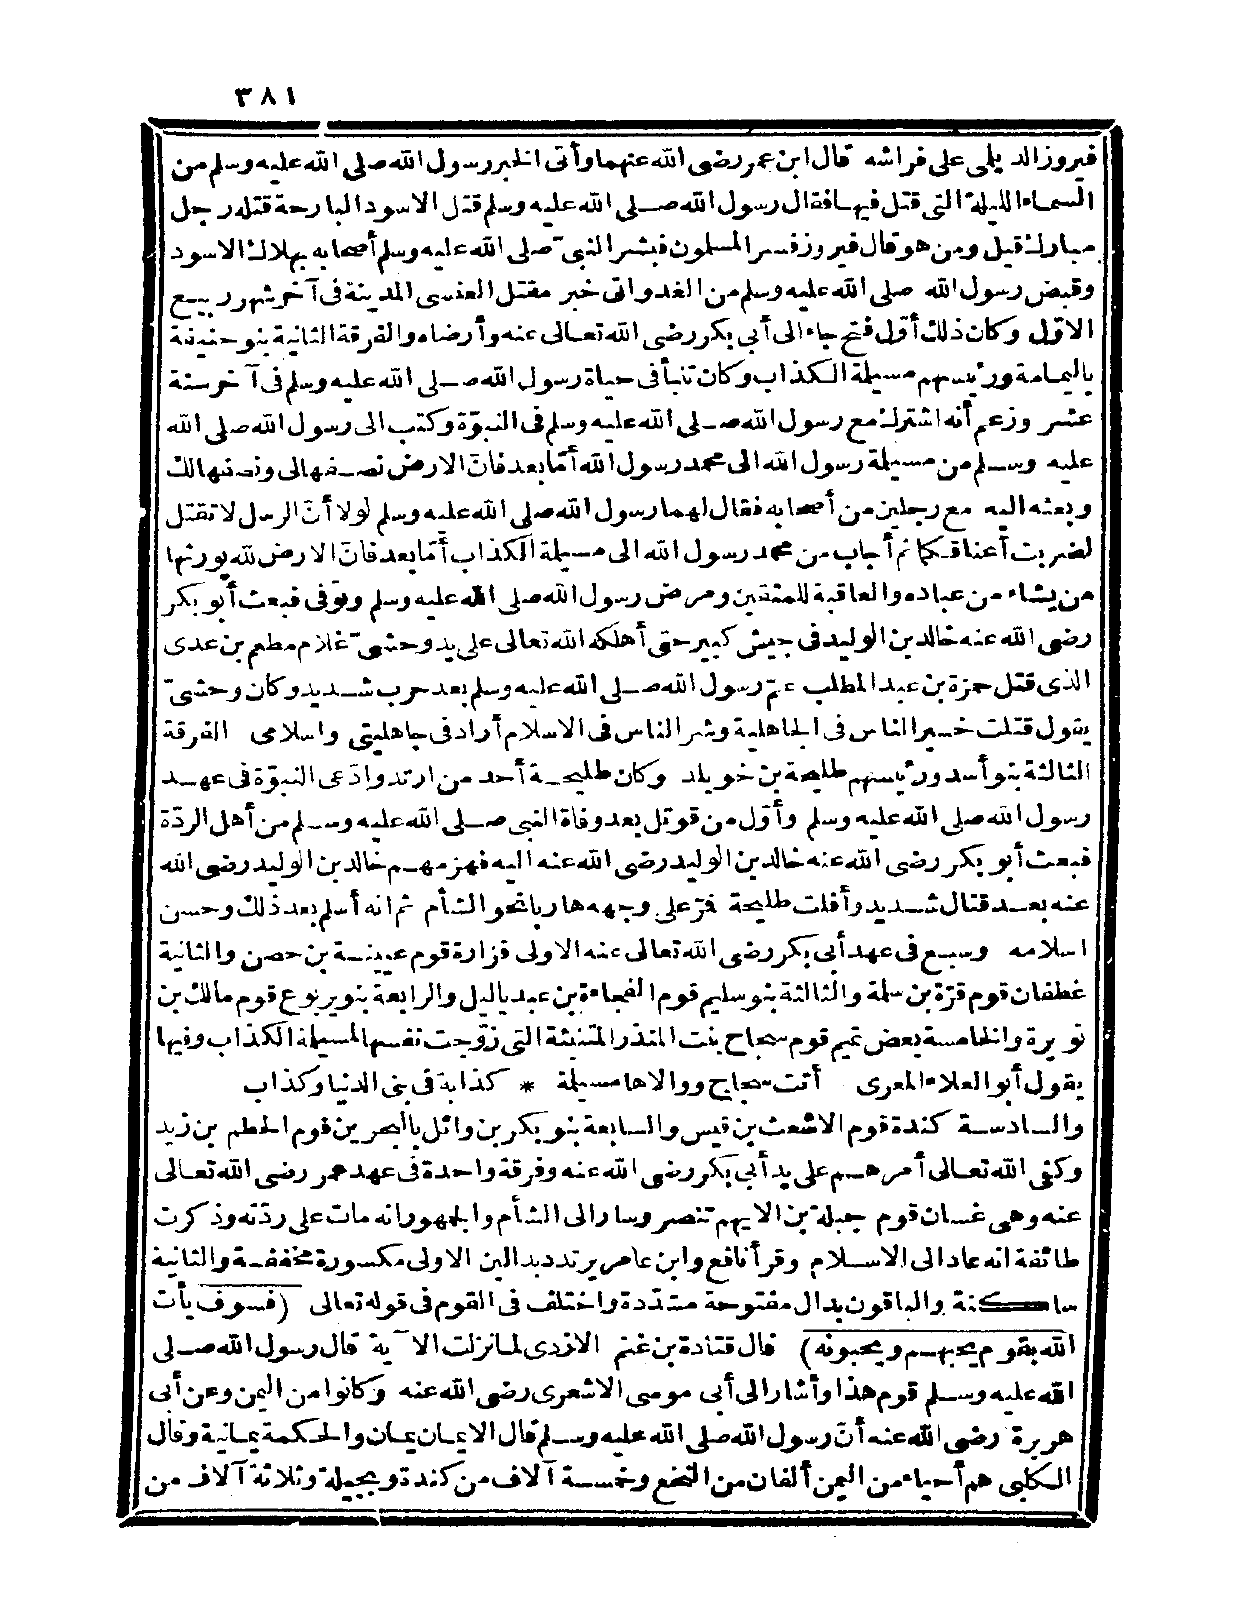 ٣٨١
فيروز الديلمى على فراشه قال ابن عمر رضى الله عنهما وأتى الخبر رسول الله صلى الله عليه وسلم من
السماء الليلة التى قتل فيها فقال رسول الله صلى الله عليه وسلم قتل الاسود البارحة قتله رجل
مبارك قيل ومن هو قال فيروز فسر المسلمون فبشر النبىّ صلى الله عليه وسلم أصحابه بهلاك الاسود
وقبض رسول الله صلى الله عليه وسلم من الغد وأتى خبر مقتل العنسى المدينة فى آخر شهر ربيع
الاوّل وكان ذلك أوّل فتح جاء الى أبى بكر رضى الله تعالى عنه وأرضاه والفرقة الثانية بنو حنيفة
باليمامة ورئيسهم مسيلة الكذاب وكان تنبأ فى حياة رسول الله صلى الله عليه وسلم فى آخر سنة
عشر وزعم أنه اشترك مع رسول الله صلى الله عليه وسلم فى النبوّة وكتب الى رسول الله صلى الله
عليه وسلم من مسيلة رسول الله الى محمد رسول الله أمّا بعد فانّ الارض نصفها لى ونصفها لك
وبعثه اليه مع رجلين من أصحابه فقال لهما رسول الله صلى الله عليه وسلم لولا أنّ الرسل لا تقتل
لضربت أعناقكما ثم أجاب من محمد رسول الله الى مسيلة الكذاب أمّا بعد فانّ الارض لله يورثها
من يشاء من عباده والعاقبة للمتقين ومرض رسول الله صلى الله عليه وسلم وتوفى فبعث أبو بكر
رضى الله عنه خالد بن الوليد فى جيش كبير حتى أهلكه الله تعالى على يد وحشىّ غلام مطعم بن عدى
الذى قتل حمزة بن عبد المطلب عمّ رسول الله صلى الله عليه وسلم بعد حرب شديد وكان وحشىّ
يقول قتلت خير الناس فى الجاهلية وشر الناس فى الاسلام أراد فى جاهليتى واسلامى الفرقة
الثالثة بنو أسد ورئيسهم طليحة بن خويلد وكان طليحة أحد من ارتد وادّعى النبوّة فى عهد
رسول الله صلى الله عليه وسلم وأوّل من قوتل بعد وفاة النبى صلى الله عليه وسلم من أهل الردّة
فبعث أبو بكر رضى الله عنه خالد بن الوليد رضى الله عنه اليه فهزمهم خالد بن الوليد رضى الله
عنه بعد قتال شديد وأفلت طليحة فرّ على وجهه هاربا نحو الشأم ثم انه أسلم بعد ذلك وحسن
اسلامه وسبع فى عهد أبى بكر رضى الله تعالى عنه الاولى فزارة قوم عيينة بن حصن والثانية
غطفان قوم قرّة بن سلمة والثالثة بنو سليم قوم الفجاءة بن عبد ياليل والرابعة بنو يربوع قوم مالك بن
نويرة والخامسة بعض تميم قوم سجاح بنت المنذر المتنبئة التى زوّجت نفسها لمسيلة الكذاب وفيها
يقول أبو العلاء المعرى أتت سجاح ووالاها مسيلة * كذابة فى بنى الدنيا وكذاب
والسادسة كندة قوم الاشعث بن قيس والسابعة بنو بكر بن وائل بالبحرين قوم الحطم بن زيد
وكفى الله تعالى أمرهم على يد أبى بكر رضى الله عنه وفرقة واحدة فى عهد عمر رضى الله تعالى
عنه وهى غسان قوم جبلة بن الايهم تنصر وسار الى الشأم والجمهور انه مات على ردّته وذكرت
طائفة انه عاد الى الاسلام وقرأ نافع وابن عامر يرتدد بدالين الاولى مكسورة مخففة والثانية
ساكنة والباقون بدال مفتوحة مشدّدة واختلف فى القوم فى قوله تعالى (فسوف يأت
الله بقوم يحبهم ويحبونه) قال قتادة بن غنم الازدى لما نزلت الآية قال رسول الله صلى
الله عليه وسلم قوم هذا وأشار الى أبى موسى الاشعرى رضى الله عنه وكانوا من اليمن وعن أبى
هريرة رضى الله عنه أنّ رسول الله صلى الله عليه وسلم قال الايمان يمان والحكمة يمانية وقال
الكلبى هم أحياء من اليمن ألفان من النخع وخمسة آلاف من كندة وبجيلة وثلاثة آلاف من